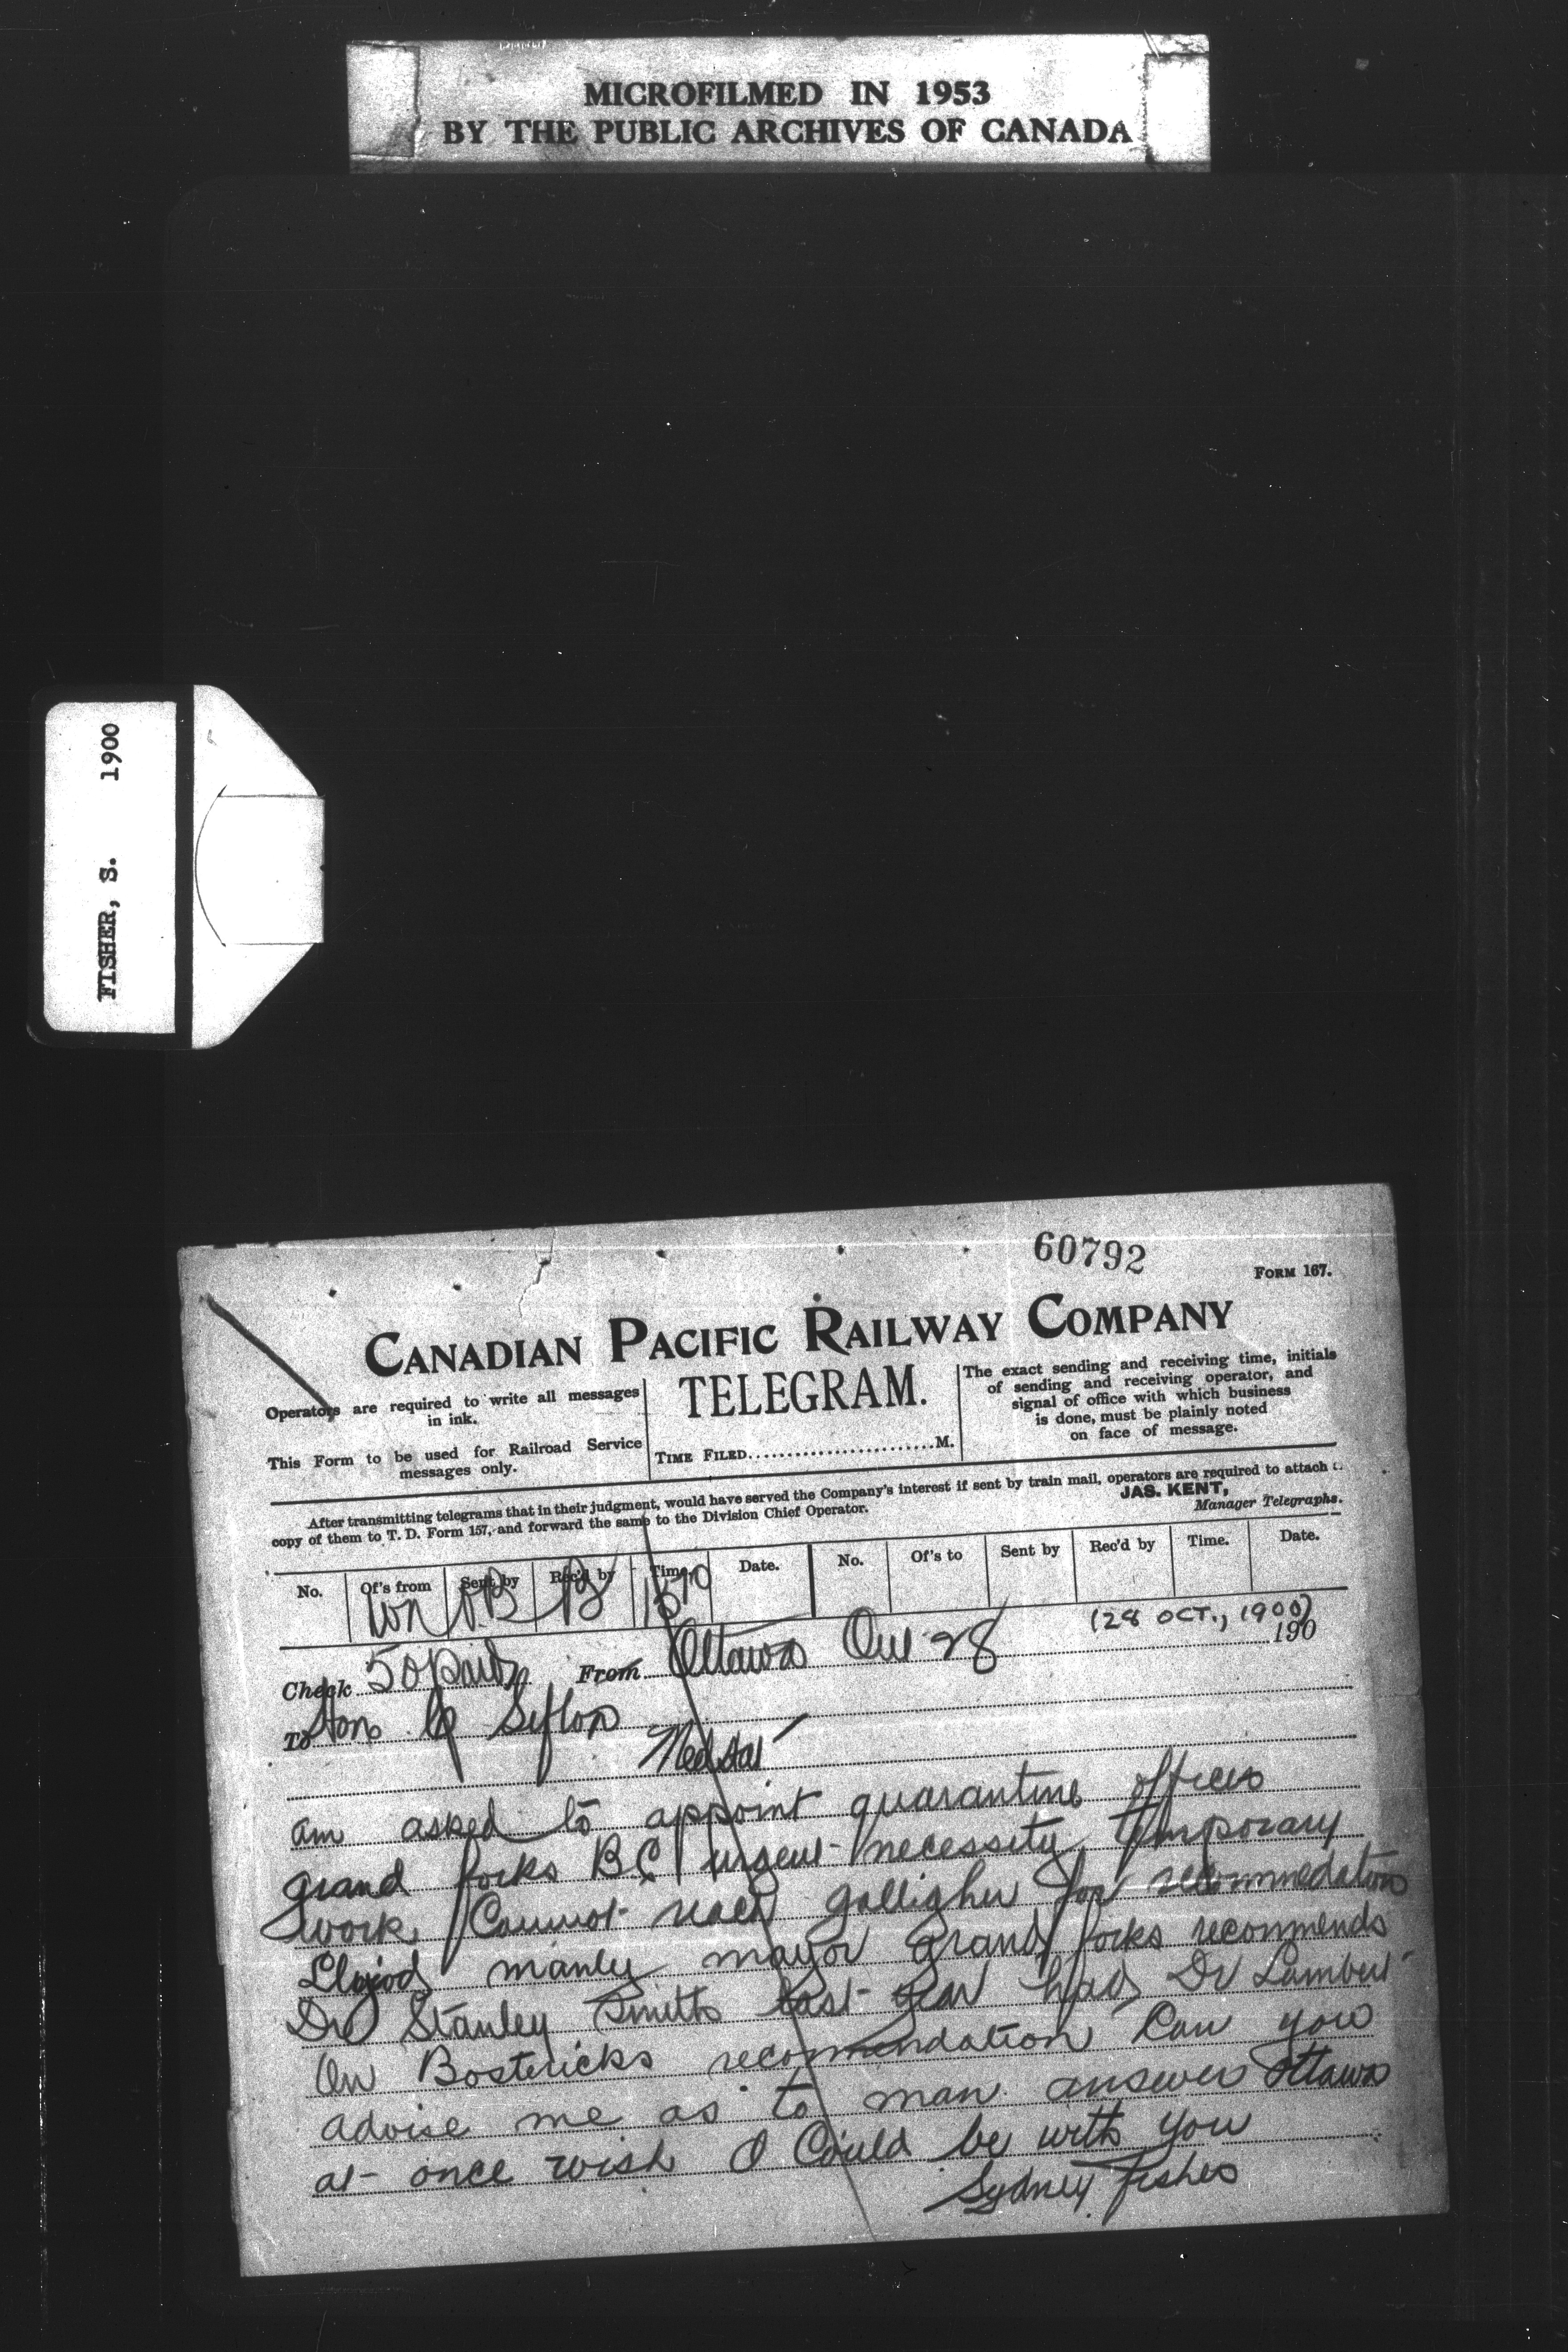 MICROFILMED IN 1953
BY THE PUBLIC ARCHIVES OF CANADA
FISHER, S. 1900
60792
FORM 167.
CANADIAN PACIFIC RAILWAY COMPANY
Operators are required to write all messages
in ink.
This Form to be used for Railroad Service
messages only.
TELEGRAM.
TIME FILED........................M.
The exact sending and receiving time, initials
of sending and receiving operator, and
signal of office with which business
is done, must be plainly noted
on face of message.
After transmitting telegrams that in their judgment, would have served the Company's interest if sent by train mail, operators are required to attach
copy of them to T. D. Form 157, and forward the same to the Division Chief Operator.
JAS. KENT,
Manager Telegraphs.
No. Of's from Sent by Rec'd by Time. Date. No. Of's to Sent by Rec'd by Time. Date.
(28 OCT., 1900)
Check 50 paid From Ottawa Oct 28 190
To Hon C Sifton
am asked to appoint quarantine officer
grand forks BC urgent necessity temporary
work Cannot reach galligher for recommedation
Lloyd manly mayor grand forks recommends
Dr Stanley Smith last year had Dr Lambert
On Bostericks recommendation Can you
advise me as to man answer Ottawa
at once wish I Could be with you
Sydney fisher